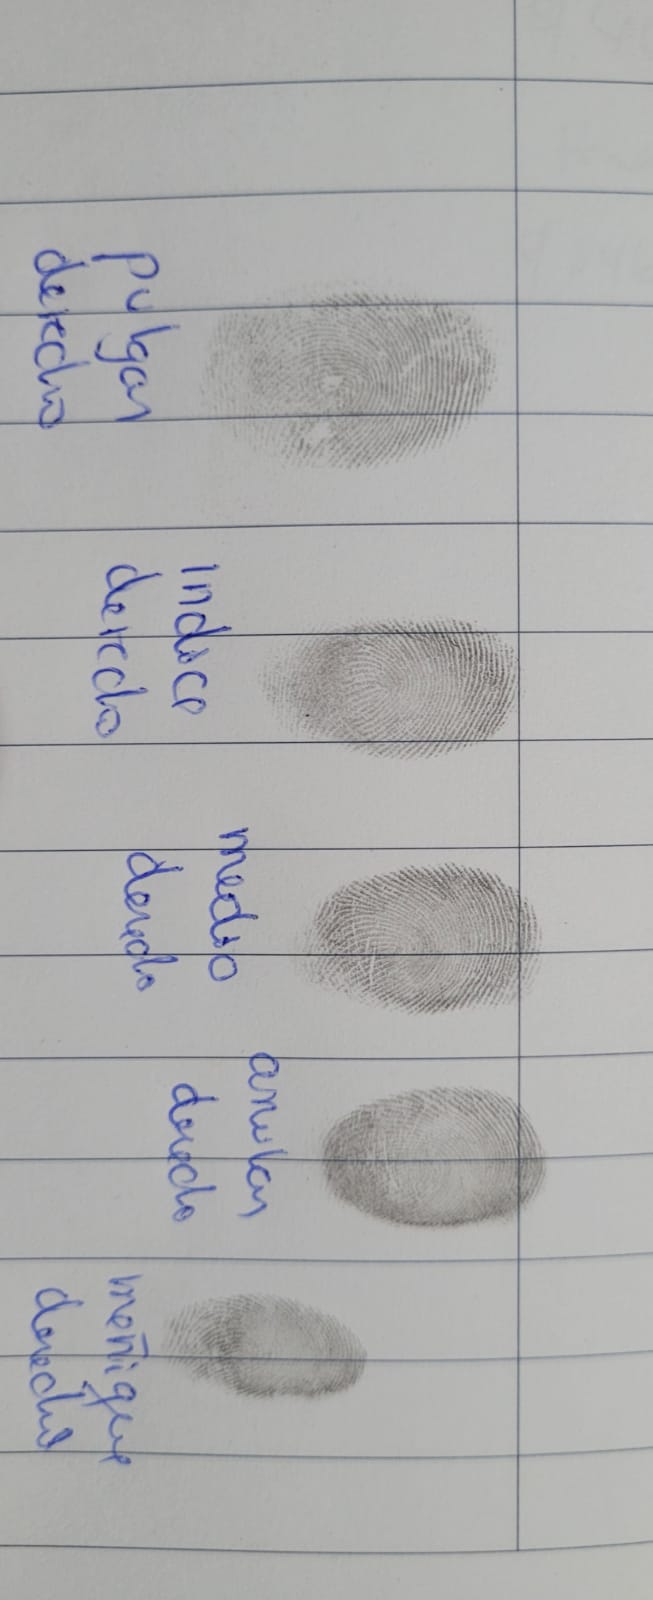 Pulgar
derecho
Indice
derecho
medio
derecho
anular
derecho
meñique
derecho